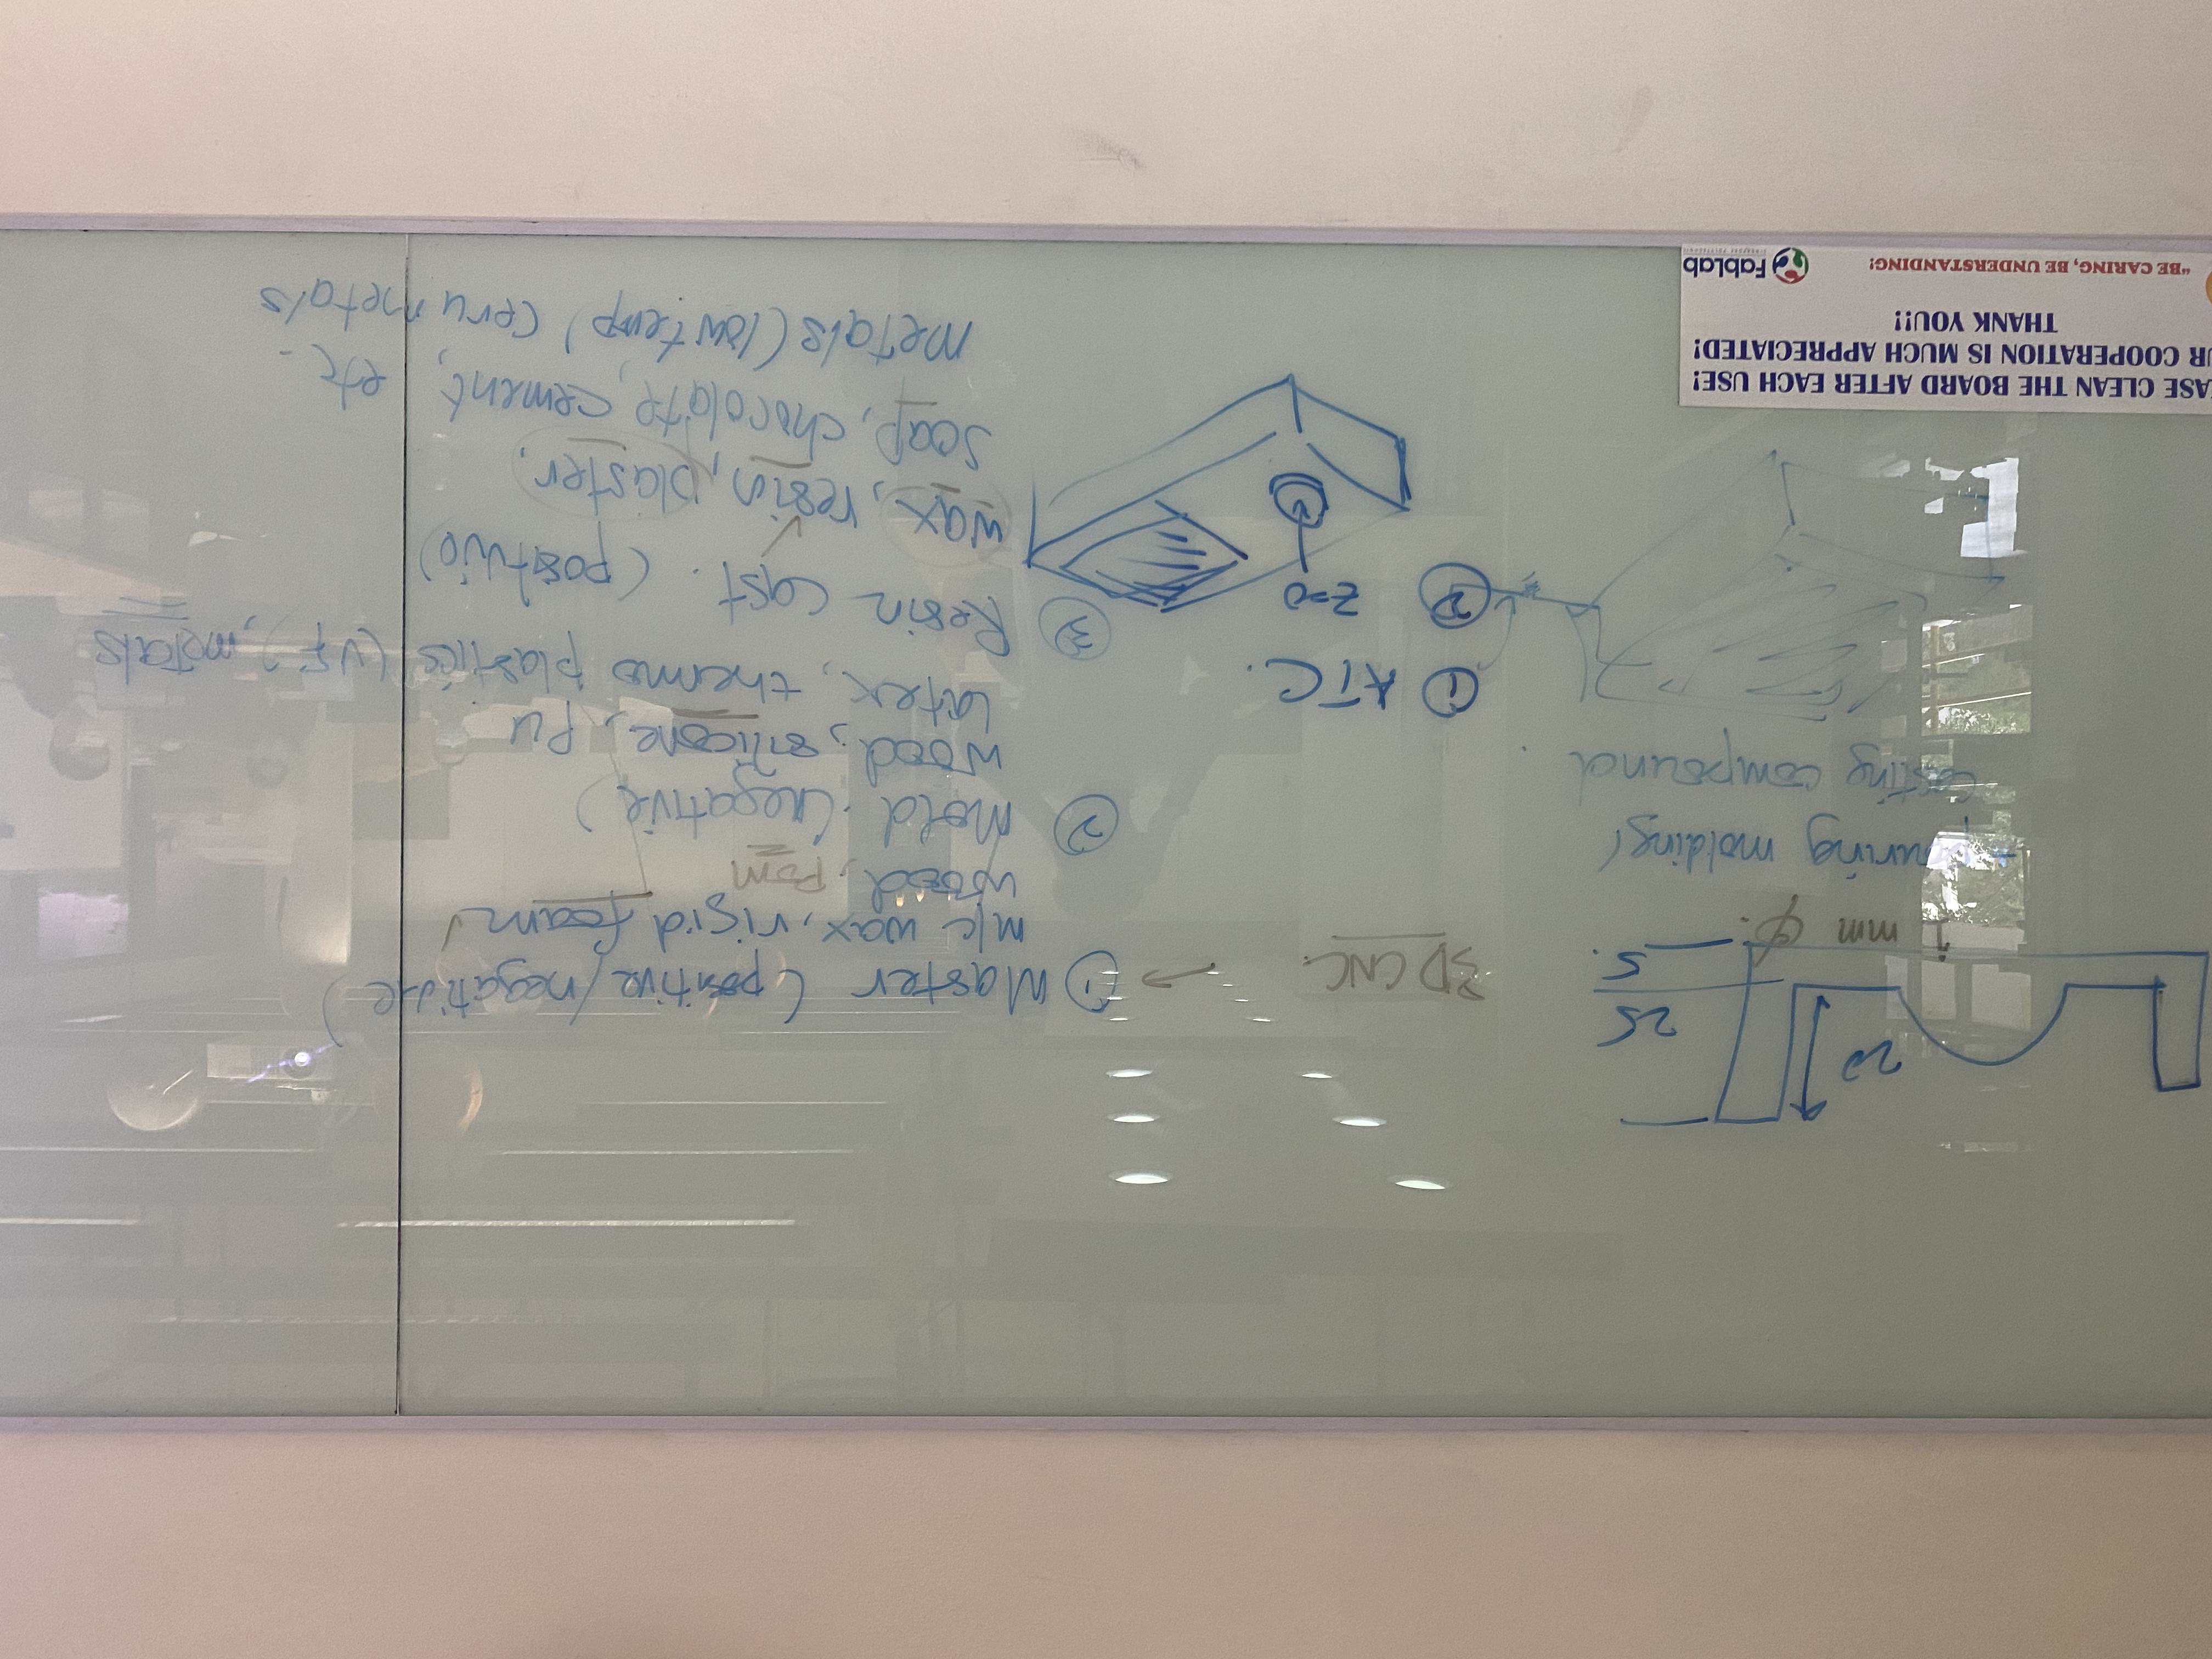 20
25
5.
1 mm ϕ.
pouring molding/
casting compound
3D CNC. → ① Master (positive/negative)
m/c wax, rigid foam ✓
wood, POM
② Mold (negative)
wood, silicone, PU
Latex, thermo plastics (VF), metals
③ Resin cast. (positive)
wax, resin, plaster,
soap, chocolate, cement, etc.
metals (low temp) ceru metals
① ATC.
② Z=0
EASE CLEAN THE BOARD AFTER EACH USE!
UR COOPERATION IS MUCH APPRECIATED!
THANK YOU!!
"BE CARING, BE UNDERSTANDING!
FabLab